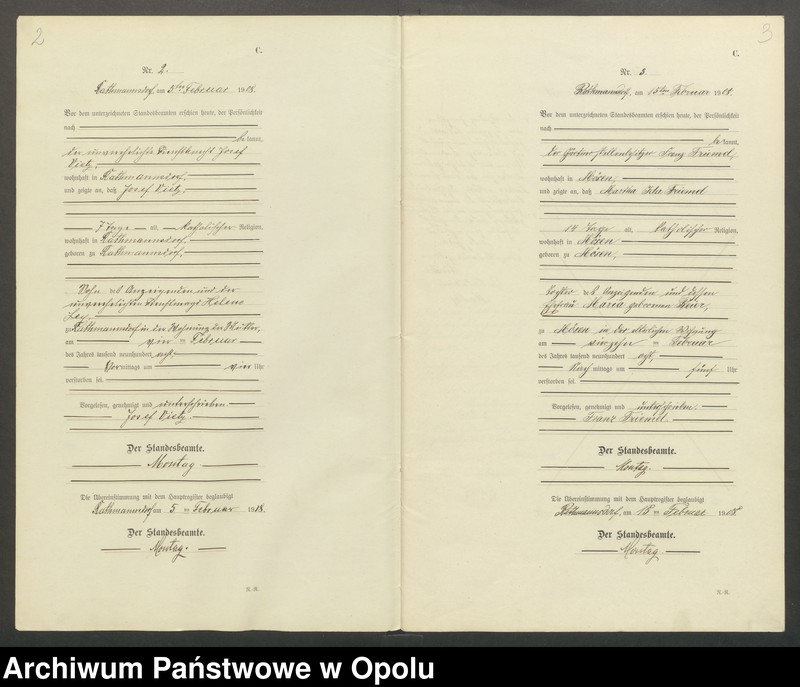 2
C.
Nr. 2.
Rathmannsdorf, am 5ten Februar 1908.
Vor dem unterzeichneten Standesbeamten erschien heute, der Persönlichkeit
nach
bekannt,
der unverehelichte Dienstknecht Josef
wohnhaft in Rathmannsdorf,
und zeigte an, daß Josef
7 Tage alt, katholischer Religion,
wohnhaft in Rathmannsdorf,
geboren zu Rathmannsdorf,
Sohn des Anzeigenden und der
unverehelichten Dienstmagd Helene
zu Rathmannsdorf in der Wohnung der Mutter,
am vier ten Februar
des Jahres tausend neunhundert acht
Vormittags um vier Uhr
verstorben sei.
Vorgelesen, genehmigt und unterschrieben
Josef
Der Standesbeamte.
Montag
Die Übereinstimmung mit dem Hauptregister beglaubigt
Rathmannsdorf, am 5 ten Februar 1908.
Der Standesbeamte.
Montag.
3
C.
Nr. 3.
Rathmannsdorf, am 15ten Februar 1908.
Vor dem unterzeichneten Standesbeamten erschien heute, der Persönlichkeit
nach
bekannt,
der Gärtnerstellenbesitzer Franz Friemel,
wohnhaft in Mösen,
und zeigte an, daß Martha Ida Friemel
14 Tage alt, katholischer Religion,
wohnhaft in Mösen
geboren zu Mösen,
Tochter des Anzeigenden und dessen
Ehefrau Maria geborenen
zu Mösen in der elterlichen Wohnung
am vierzehn ten Februar
des Jahres tausend neunhundert acht,
Nachmittags um fünf Uhr
verstorben sei.
Vorgelesen, genehmigt und unterschrieben.
Franz Friemel.
Der Standesbeamte.
Montag.
Die Übereinstimmung mit dem Hauptregister beglaubigt
Rathmannsdorf, am 15 ten Februar 1908.
Der Standesbeamte.
Montag.
Archiwum Państwowe w Opolu